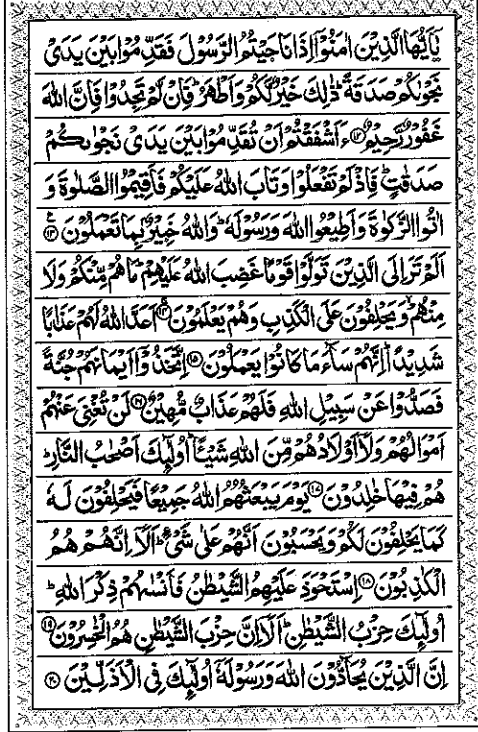 يٰۤاَيُّهَا الَّذِيْنَ اٰمَنُوْۤا اِذَا نَاجَيْتُمُ الرَّسُوْلَ فَقَدِّمُوْا بَيْنَ يَدَىْ
نَجْوٰىكُمْ صَدَقَةً ؕ ذٰلِكَ خَيْرٌ لَّكُمْ وَاَطْهَرُ ؕ فَاِنْ لَّمْ تَجِدُوْا فَاِنَّ اللّٰهَ
غَفُوْرٌ رَّحِيْمٌ ﴿۱۲﴾ ءَاَشْفَقْتُمْ اَنْ تُقَدِّمُوْا بَيْنَ يَدَىْ نَجْوٰىكُمْ
صَدَقٰتٍ ؕ فَاِذْ لَمْ تَفْعَلُوْا وَتَابَ اللّٰهُ عَلَيْكُمْ فَاَقِيْمُوا الصَّلٰوةَ وَ
اٰتُوا الزَّكٰوةَ وَاَطِيْعُوا اللّٰهَ وَرَسُوْلَهٗ ؕ وَاللّٰهُ خَبِيْرٌۢ بِمَا تَعْمَلُوْنَ ﴿۱۳﴾
اَلَمْ تَرَ اِلَى الَّذِيْنَ تَوَلَّوْا قَوْمًا غَضِبَ اللّٰهُ عَلَيْهِمْ ؕ مَا هُمْ مِّنْكُمْ وَلَا
مِنْهُمْ ۙ وَيَحْلِفُوْنَ عَلَى الْكَذِبِ وَهُمْ يَعْلَمُوْنَ ﴿۱۴﴾ اَعَدَّ اللّٰهُ لَهُمْ عَذَابًا
شَدِيْدًا ؕ اِنَّهُمْ سَآءَ مَا كَانُوْا يَعْمَلُوْنَ ﴿۱۵﴾ اِتَّخَذُوْۤا اَيْمَانَهُمْ جُنَّةً
فَصَدُّوْا عَنْ سَبِيْلِ اللّٰهِ فَلَهُمْ عَذَابٌ مُّهِيْنٌ ﴿۱۶﴾ لَنْ تُغْنِىَ عَنْهُمْ
اَمْوَالُهُمْ وَلَاۤ اَوْلَادُهُمْ مِّنَ اللّٰهِ شَيْـًٔا ؕ اُولٰٓئِكَ اَصْحٰبُ النَّارِ ؕ
هُمْ فِيْهَا خٰلِدُوْنَ ﴿۱۷﴾ يَوْمَ يَبْعَثُهُمُ اللّٰهُ جَمِيْعًا فَيَحْلِفُوْنَ لَهٗ
كَمَا يَحْلِفُوْنَ لَكُمْ وَيَحْسَبُوْنَ اَنَّهُمْ عَلٰى شَىْءٍ ؕ اَلَاۤ اِنَّهُمْ هُمُ
الْكٰذِبُوْنَ ﴿۱۸﴾ اِسْتَحْوَذَ عَلَيْهِمُ الشَّيْطٰنُ فَاَنْسٰىهُمْ ذِكْرَ اللّٰهِ ؕ
اُولٰٓئِكَ حِزْبُ الشَّيْطٰنِ ؕ اَلَاۤ اِنَّ حِزْبَ الشَّيْطٰنِ هُمُ الْخٰسِرُوْنَ ﴿۱۹﴾
اِنَّ الَّذِيْنَ يُحَآدُّوْنَ اللّٰهَ وَرَسُوْلَهٗۤ اُولٰٓئِكَ فِى الْاَذَلِّيْنَ ﴿۲۰﴾